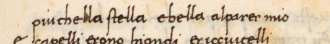 piu chella stella e bella al parer mio
e capelli erono biondi e ricciutelli